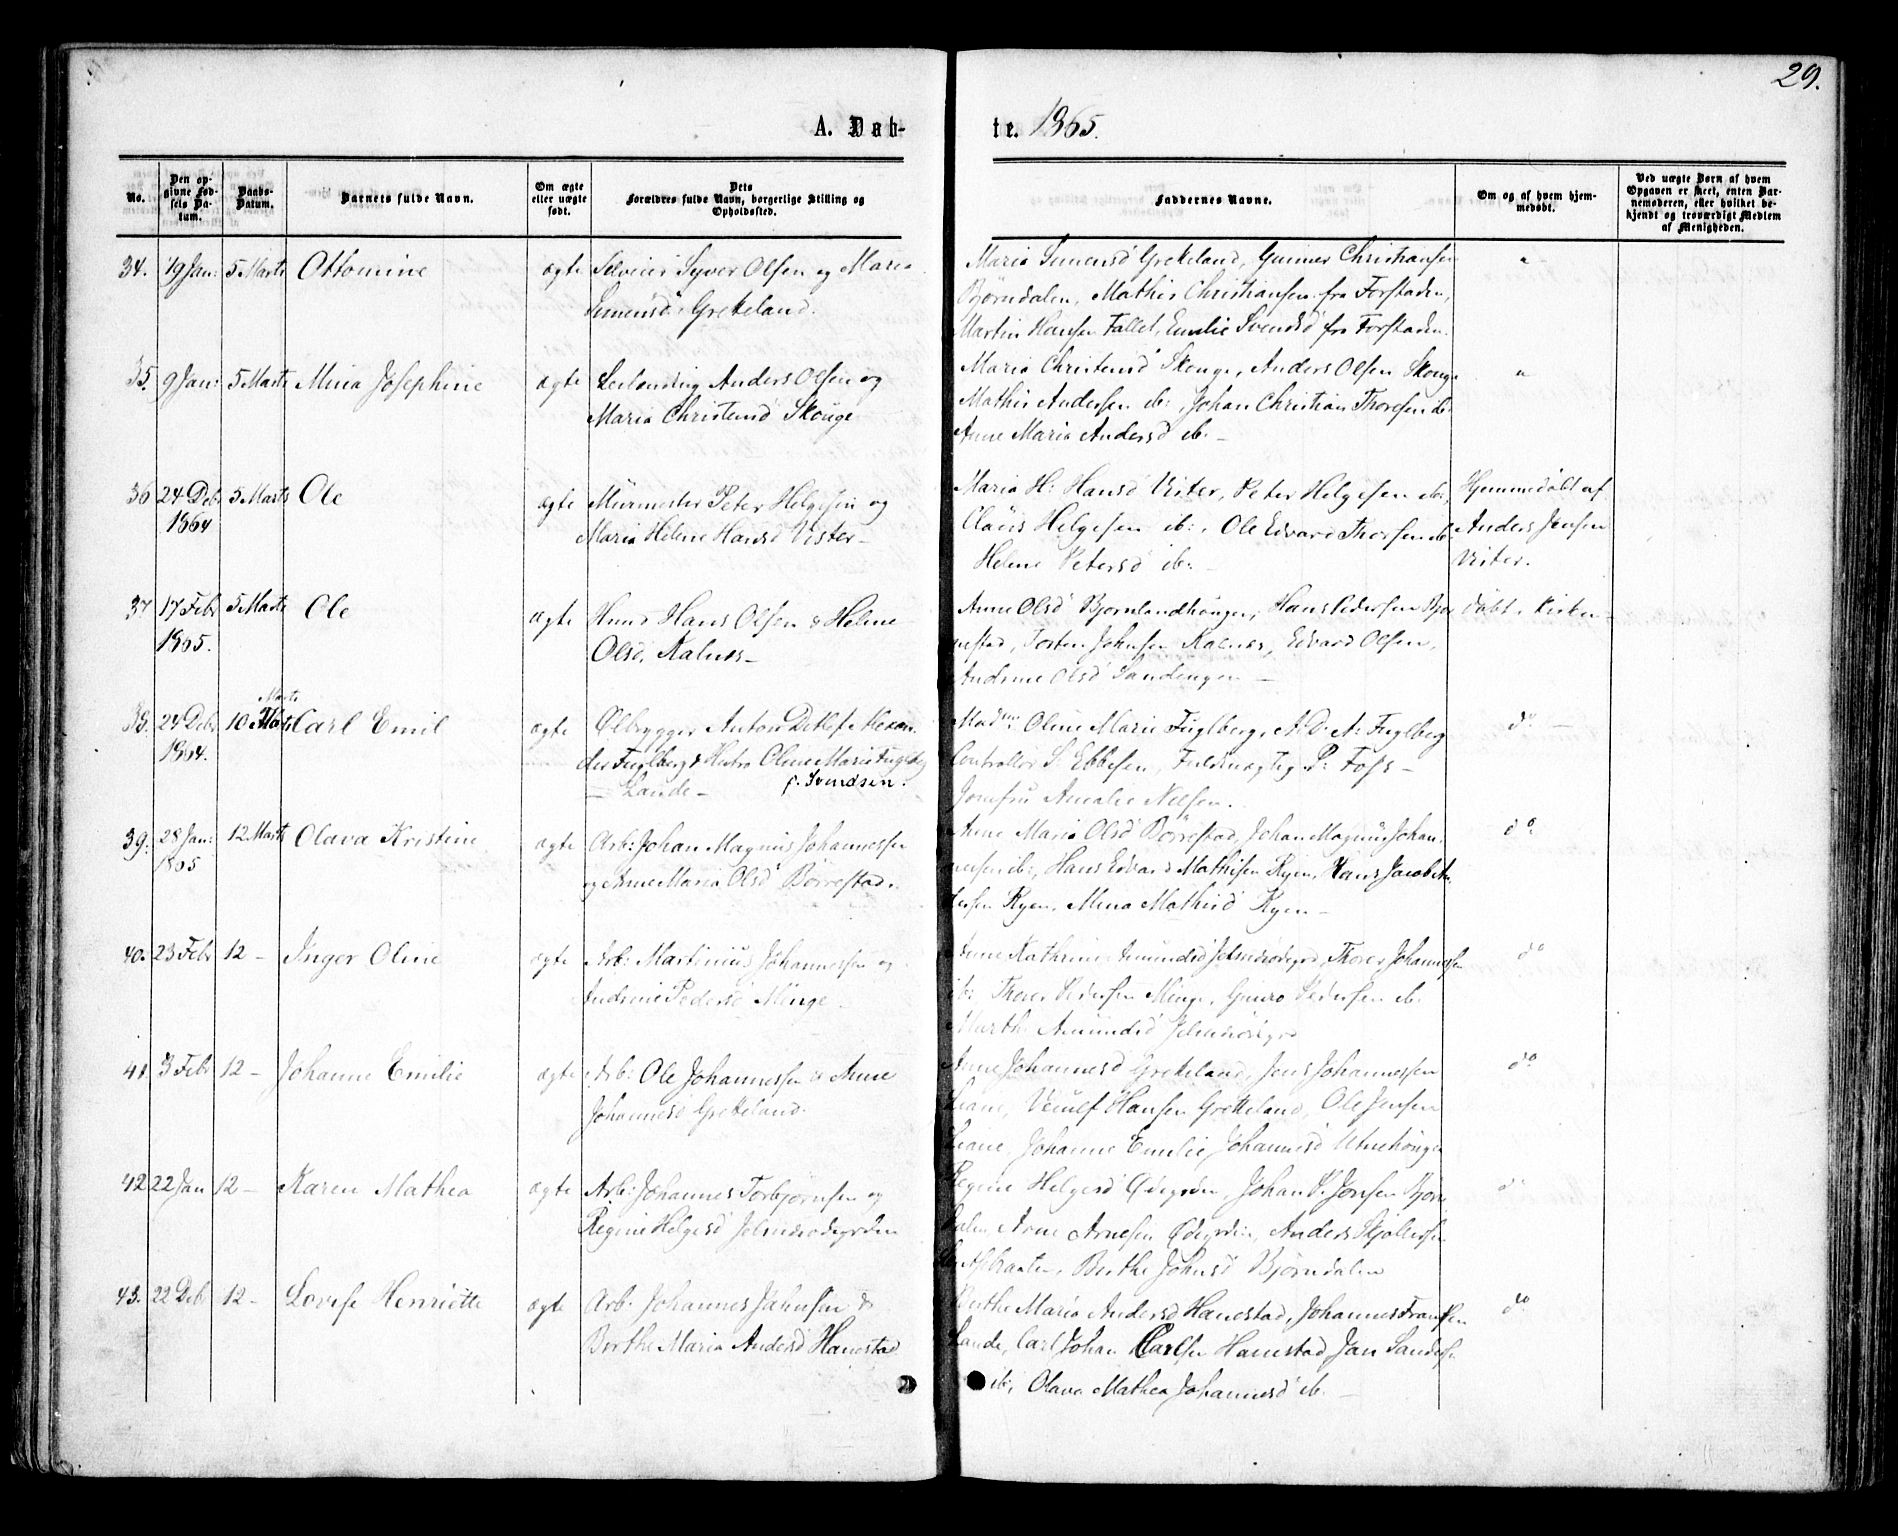 29.
A. Døb-
te. 1865.
No.
Den op-
givne Fød-
sels Da-
tum.
Daabs-
Datum.
Barnets fulde Navn.
Om ægte
eller uægte
født.
Dets
Forældres fulde Navn, borgerlige Stilling og
Opholdssted.
Faddernes Navne.
Om og af hvem hjem-
medøbt.
Ved uægte Børn af hvem
Opgaven er skeet, enten Bar-
nemoderen, eller hvilket be-
kjendt og troværdigt Medlem
af Menigheden.
34. 19 Jan: 5 Marts Ottomine ægte Selveier Syver Olsen og Maria
Simensd Grekeland.
Maria Simensd Grekeland, Gunner Christiansen
Bjørndalen, Mathis Christiansen fra Forstaden,
Martin Hansen Fallet, Emilie Svendsd fra Forstaden.
35. 9 Jan: 5 Marts Mina Josephine ægte Leilending Anders Olsen og
Maria Christensd Skouge
Maria Christensd Skouge, Anders Olsen Skouge
Mathis Andersen ib:, Johan Christian Thoresen ib:
Anne Maria Andersd ib. –
36 24 Deb 5 Marts Ole ægte Murmester Peter Helgesen og
1864
Maria Helene Hansd Vister –
Maria H: Hansd Vister, Peter Helgesen ib:,
Claus Helgesen ib:, Ole Edvard Thorsen ib:
Helene Petersd ib: –
Hjemmedøbt af
Anders Jensen
Vister.
37 17 Febr 5 Marts Ole ægte Huusm Hans Olsen & Helene
1865.
Olsd, Kalnes –
Anne Olsd Bjørnlandhougen, Hans Pedersen Bjør
nestad, Torsten Johnsen Kalnes, Edvard Olsen,
Andrine Olsd Sandengen –
døbt i Kirken –
38. 24 Deb 10 Marts Carl Emil ægte Ølbrygger Anton Detlef Alexan
1864.
der Fuglberg & Hustro Oline Marie Fuglbg
– Lande – f. Svendsen.
Madme Oline Marie Fuglberg, A. D. A: Fuglberg
Controllør S. Ebbesen, Fuldmægtig P: Foss –
Jomfru Amalie Nilsen.
do –
39. 28 Jan: 12 Marts Olava Kristine ægte Arb: Johan Magnus Johannessen
1865
og Anne Maria Olsd Børrestad.
Anne Maria Olsd Børrestad, Johan Magnus Johan
nessen ib:, Hans Edvard Mathisen Ryen, Hans Jacob An
dersen Ryen, Mina Mathisd Ryen –
do
40. 23 Febr 12 – Inger Oline ægte Arb: Martinius Johannessen og
Andrine Pedersd Minge –
Anne Kathrine Amundsd Jelmerødegrd, Thorer Johannessen
ib: Thorer Pedersen Minge, Gunro Pedersen ib.
Marthe Amundsd Jelmerødegrd
do
41. 3 Febr 12 – Johanne Emilie ægte Arb: Ole Johannessen & Anne
Johannesd Grekeland.
Anne Johannesd Grekeland, Jens Johannessen
Liane, Hansen Grekeland, Ole Jensen
Liane, Johanne Emilie Johannesd
do
42 22 Jan 12 – Karen Mathea ægte Arb: Johannes Torbjørnsen og
Regine Helgesd Jelmerødegrden
Regine Helgesd Ødegrden, Johan P. Jonsen Bjørn
dalen Arne Arnesen Ødegrden, Anders
Berthe Johnsd Bjørndalen
do
43. 22 Deb 12 – Lovise Henriette ægte Arb: Johannes Jahnsen &
Berthe Maria Andersd Hanestad
Berthe Maria Andersd Hanestad, Johannes Frantsen
Lande, Carl Johan Carlsen Hanestad Jan Sandersen
ib:, Olava Mathea Johannesd ib. –
do